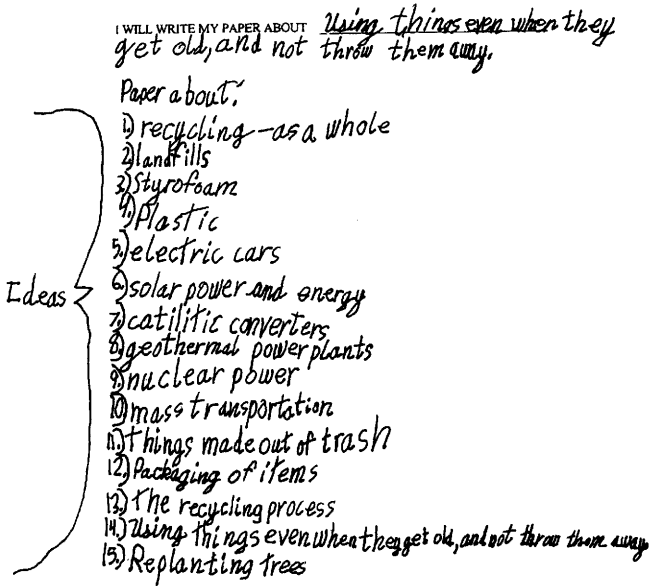 I WILL WRITE MY PAPER ABOUT Using things even when they
get old, and not throw them away.
Paper about:
1.) recycling - as a whole
2.) landfills
3.) Styrofoam
4.) Plastic
5.) electric cars
Ideas
6.) solar power and energy
7.) catilitic converters
8.) geothermal power plants
9.) nuclear power
10.) mass transportation
11.) things made out of trash
12.) Packaging of items
13.) The recycling process
14.) Using things even when they get old, and not throw them away
15.) Replanting trees